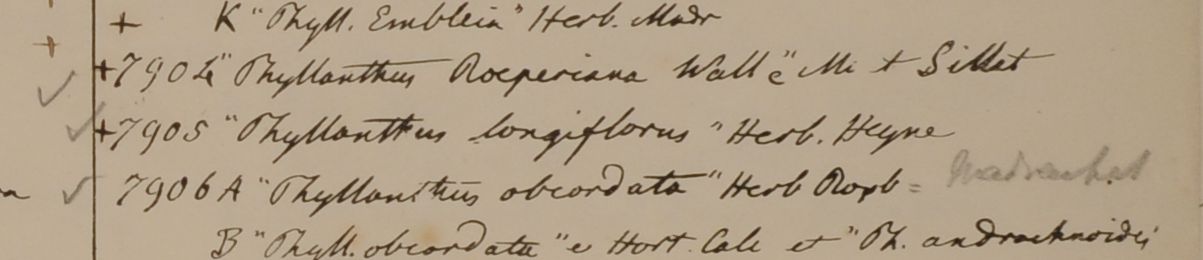 + K "Phyll. Emblica" Herb. Madr
+7904 "Phyllanthus Roeperiana Wall" e Mt Sillet
+7905 "Phyllanthus longiflorus" Herb. Heyne
7906 A "Phyllanthus obcordata" Herb Roxb =
B "Phyll. obcordata" e Hort. Calc et "Ph. andrachnoides